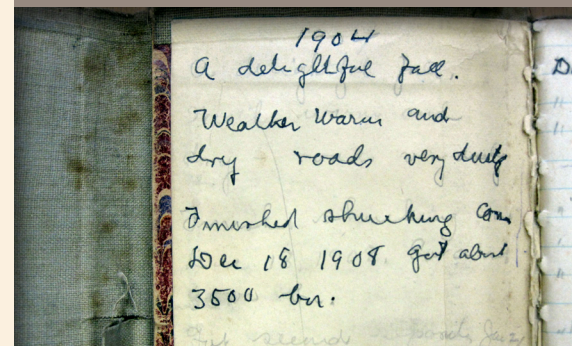 1904
A delightful fall.
Weather Warm and
dry roads very dusty
Finished shucking Corn
Dec 18 1908 got about
3500 bu.